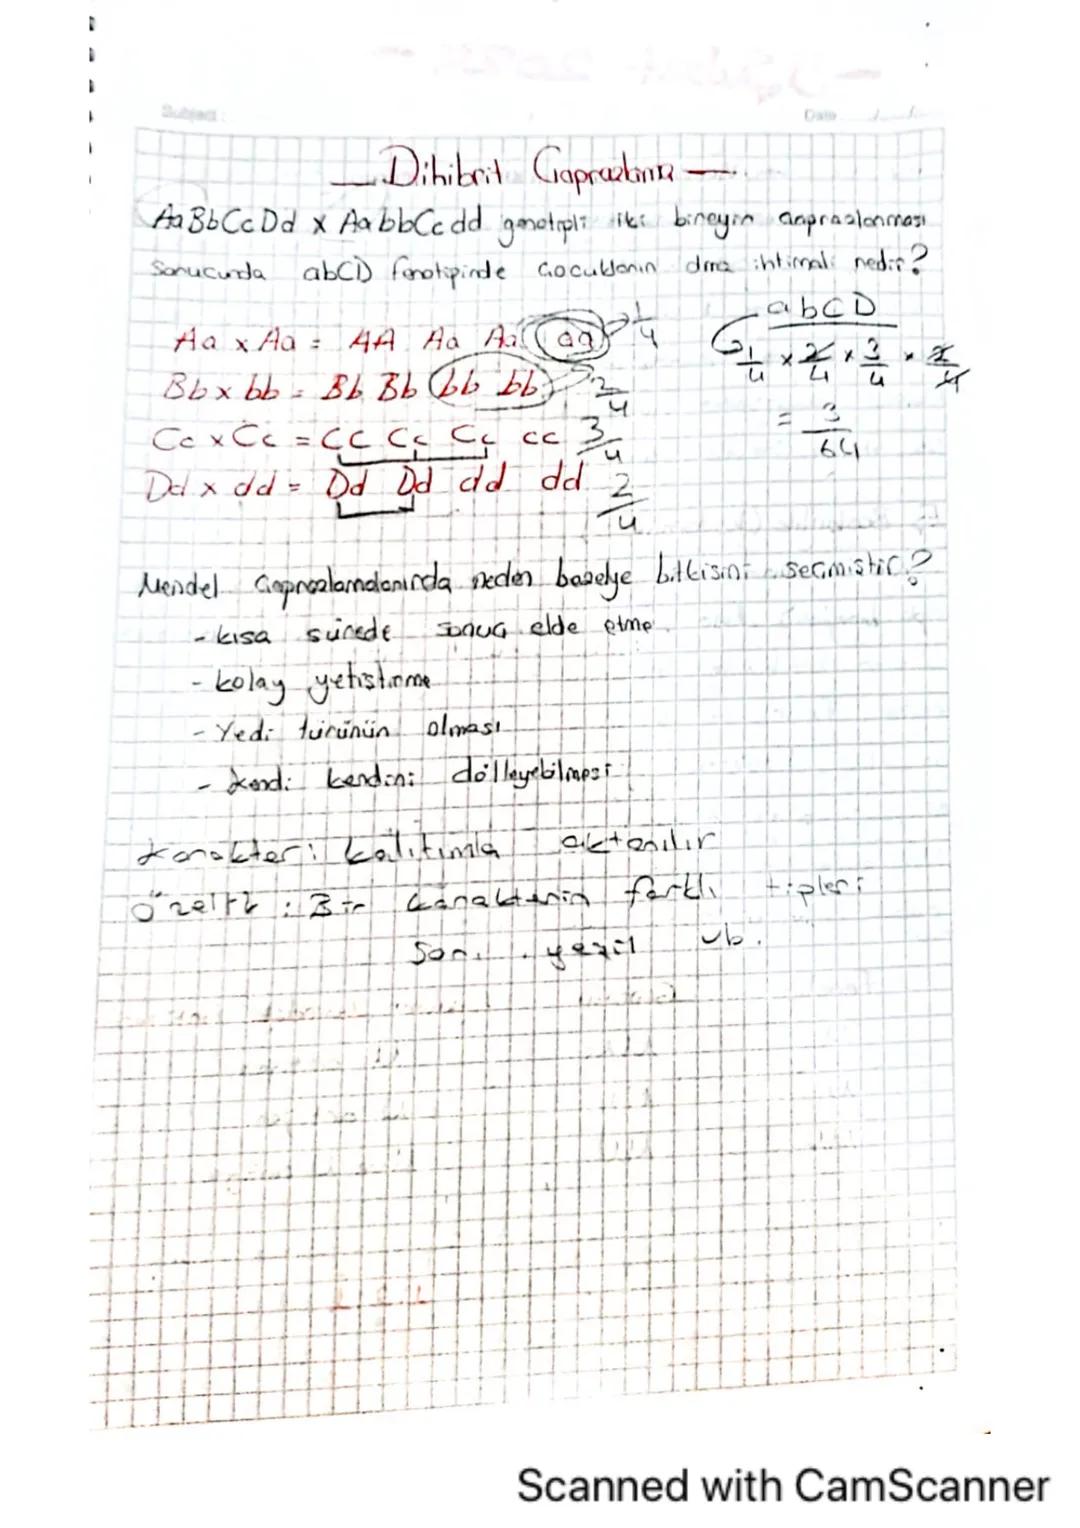 Subject : Date / /
Dihibrit Çaprazlama
AaBbCcDd x AabbCcdd genotipli iki bireyin çaprazlanması
Sonucunda abCD fenotipinde çocukların olma ihtimali nedir?
Aa x Aa = AA Aa Aa aa 1/4
Bb x bb = Bb Bb bb bb 2/4
Cc x Cc = CC Cc Cc cc 3/4
Dd x dd = Dd Dd dd dd 2/4
abCD
1/4 x 2/4 x 3/4 x 2/4
= 3/64
Mendel Çaprazlamalarında neden bezelye bitkisini seçmiştir?
- kısa sürede sonuç elde etme
- kolay yetiştirme
- Yedi türünün olması
- Kendi kendini dölleyebilmesi
Karakter: kalıtımla aktarılır
Özellik : Bir karakterin farklı tipleri
Sarı . yeşil vb.
Scanned with CamScanner